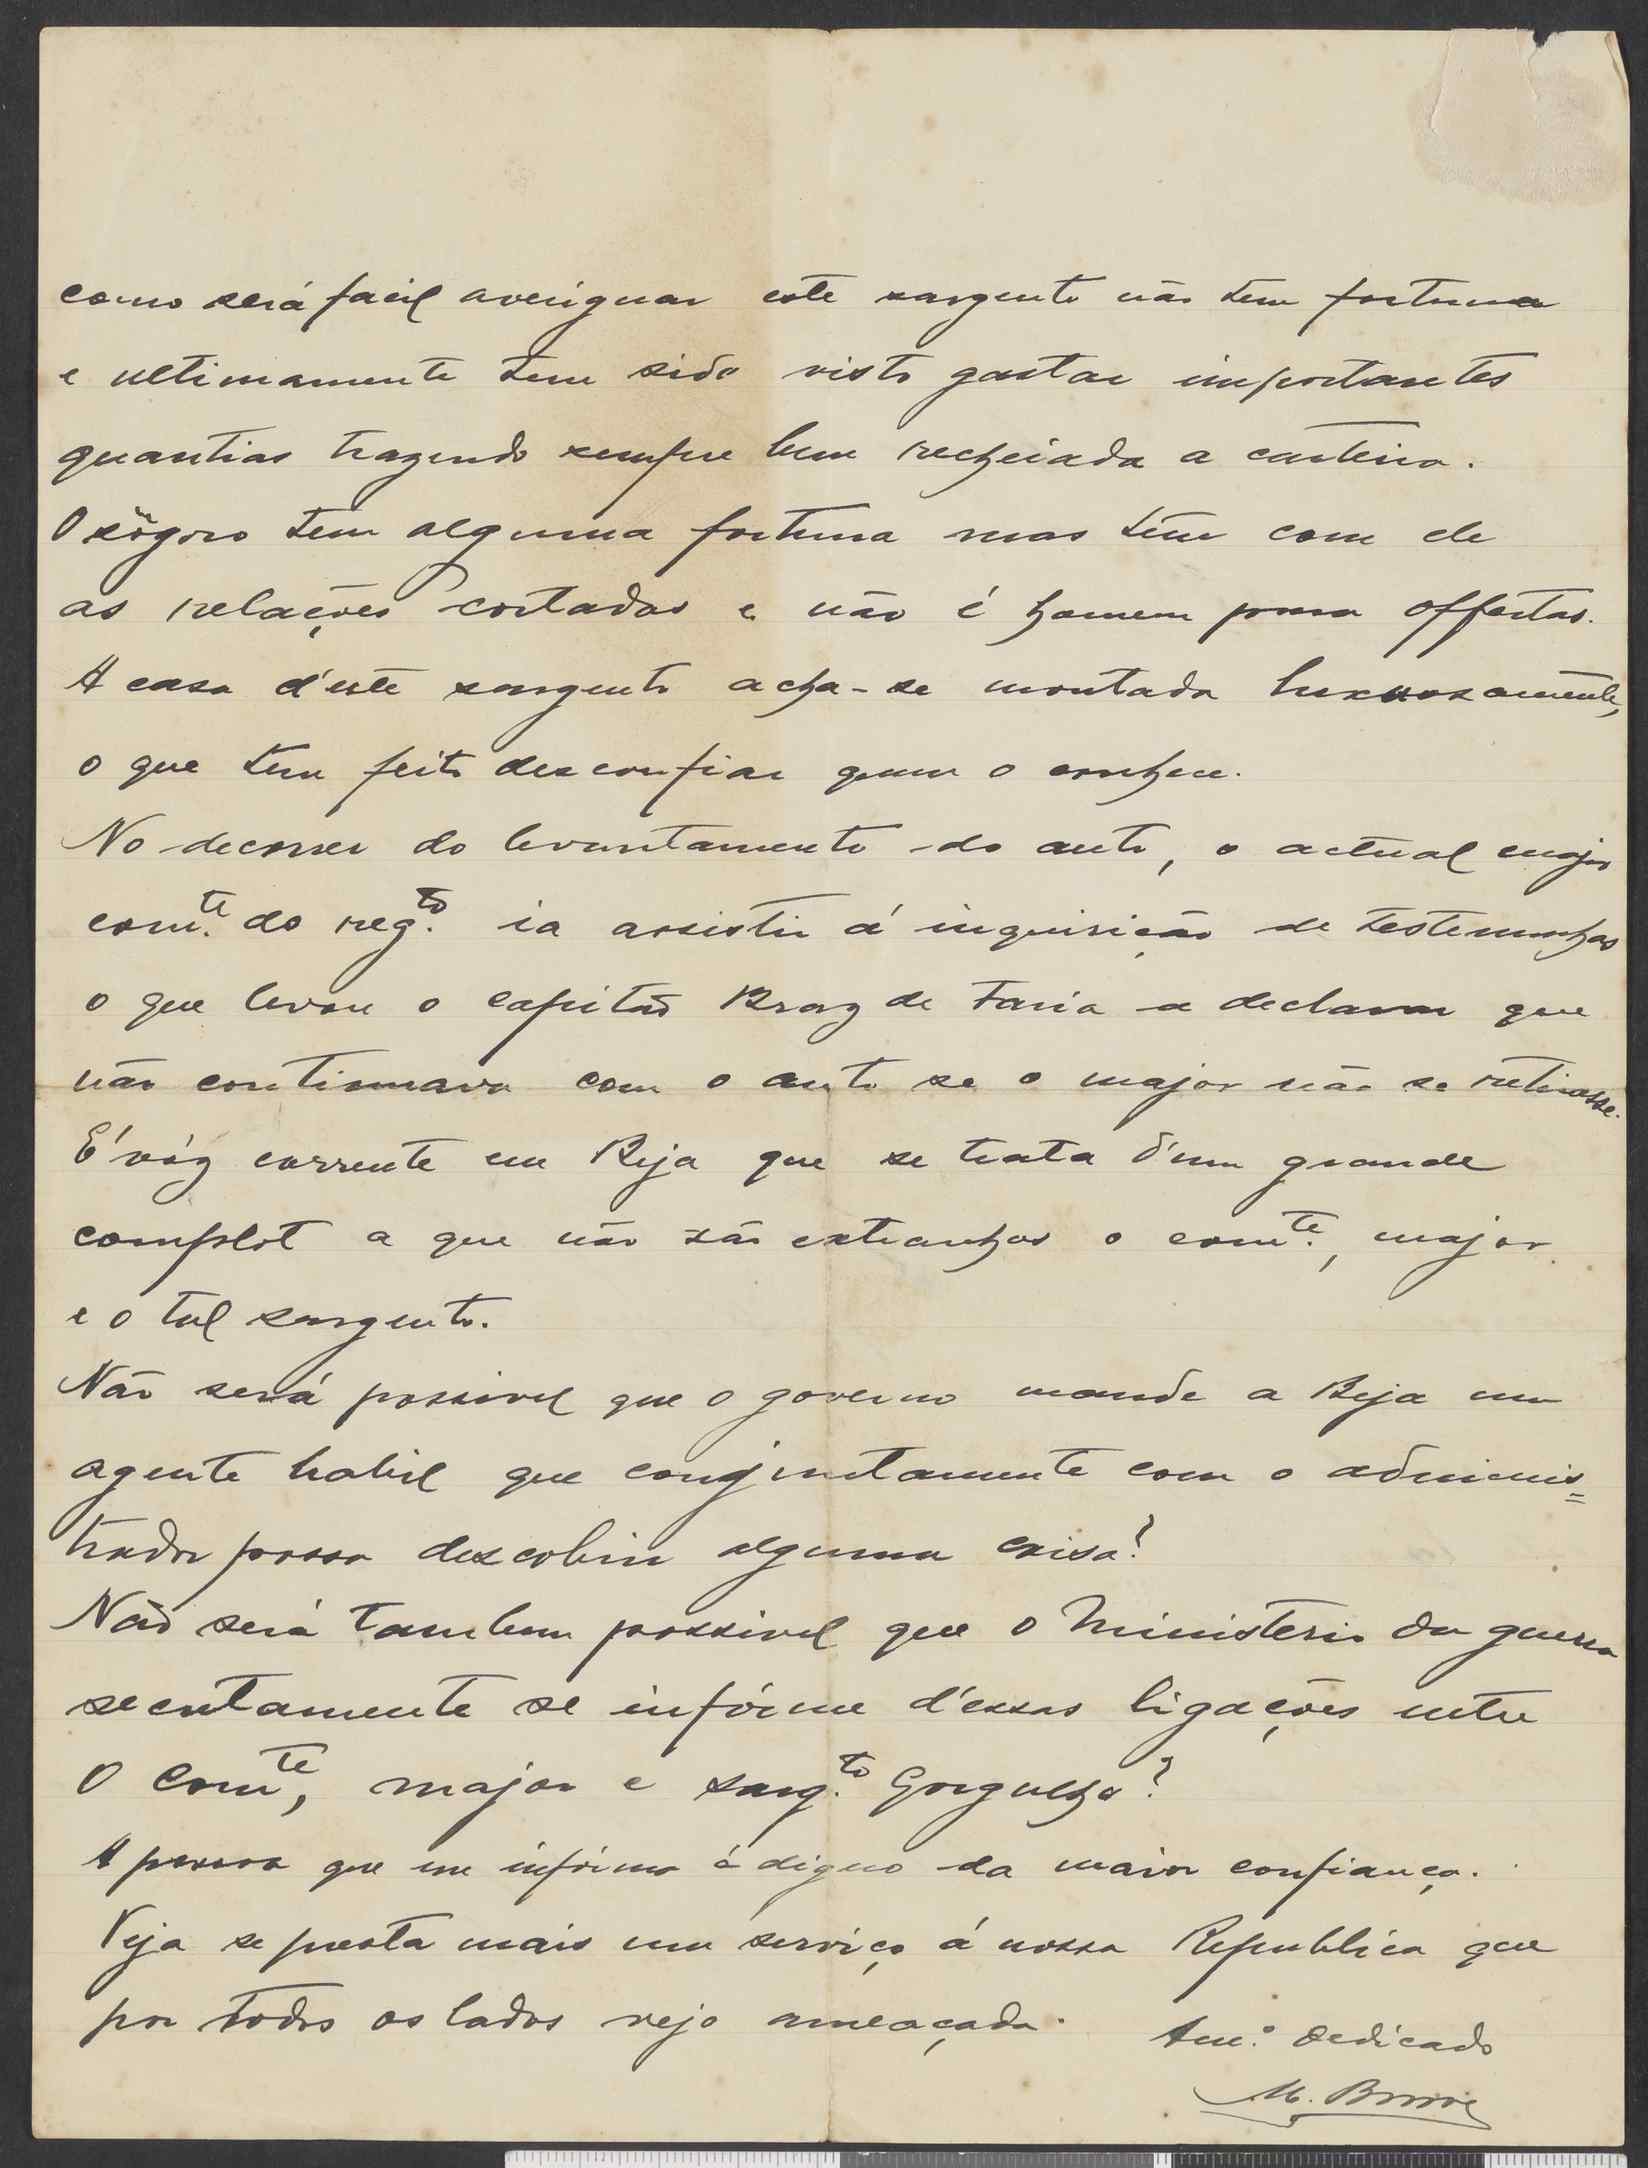 como será facil averiguar este sargento não tem fortuna
e ultimamente tem sido visto gastar importantes
quantias trazendo sempre bem recheiada a carteira.
O sôgro tem alguma fortuna mas tem com ele
as relações cortadas e não é homem para offertas.
A casa d'este sargento acha-se montada luxuosamente,
o que tem feito desconfiar quem o conhece.
No decorrer do levantamento do auto, o actual major
com.te do reg.to ia assistir á inquirição de testemunhas
o que levou o capitão Braz de Faria a declarar que
não continuava com o auto se o major não se retirasse.
E' vóz corrente em Beja que se trata d'um grande
complot a que não são extranhos o com.te, major
e o tal sargento.
Não será possivel que o governo mande a Beja um
agente habil que conjuntamente com o adminis=
trador possa descobrir alguma coisa?
Não será tambem possivel que o Ministerio da guerra
secretamente se infórme d'essas ligações entre
O Comte, major e sarg.to Gorgulho?
A pessoa que me informa é digno da maior confiança.
Veja se presta mais um serviço á nossa Republica que
por todos os lados vejo ameaçada.
Am.º dedicado
M.